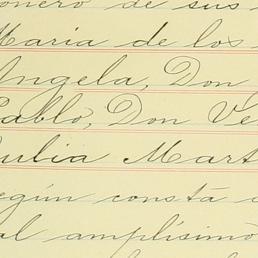 onero de sus
Maria de los
Angela, Don
Pablo, Don Ve
Julia Mart
egún constá
al amplísimò